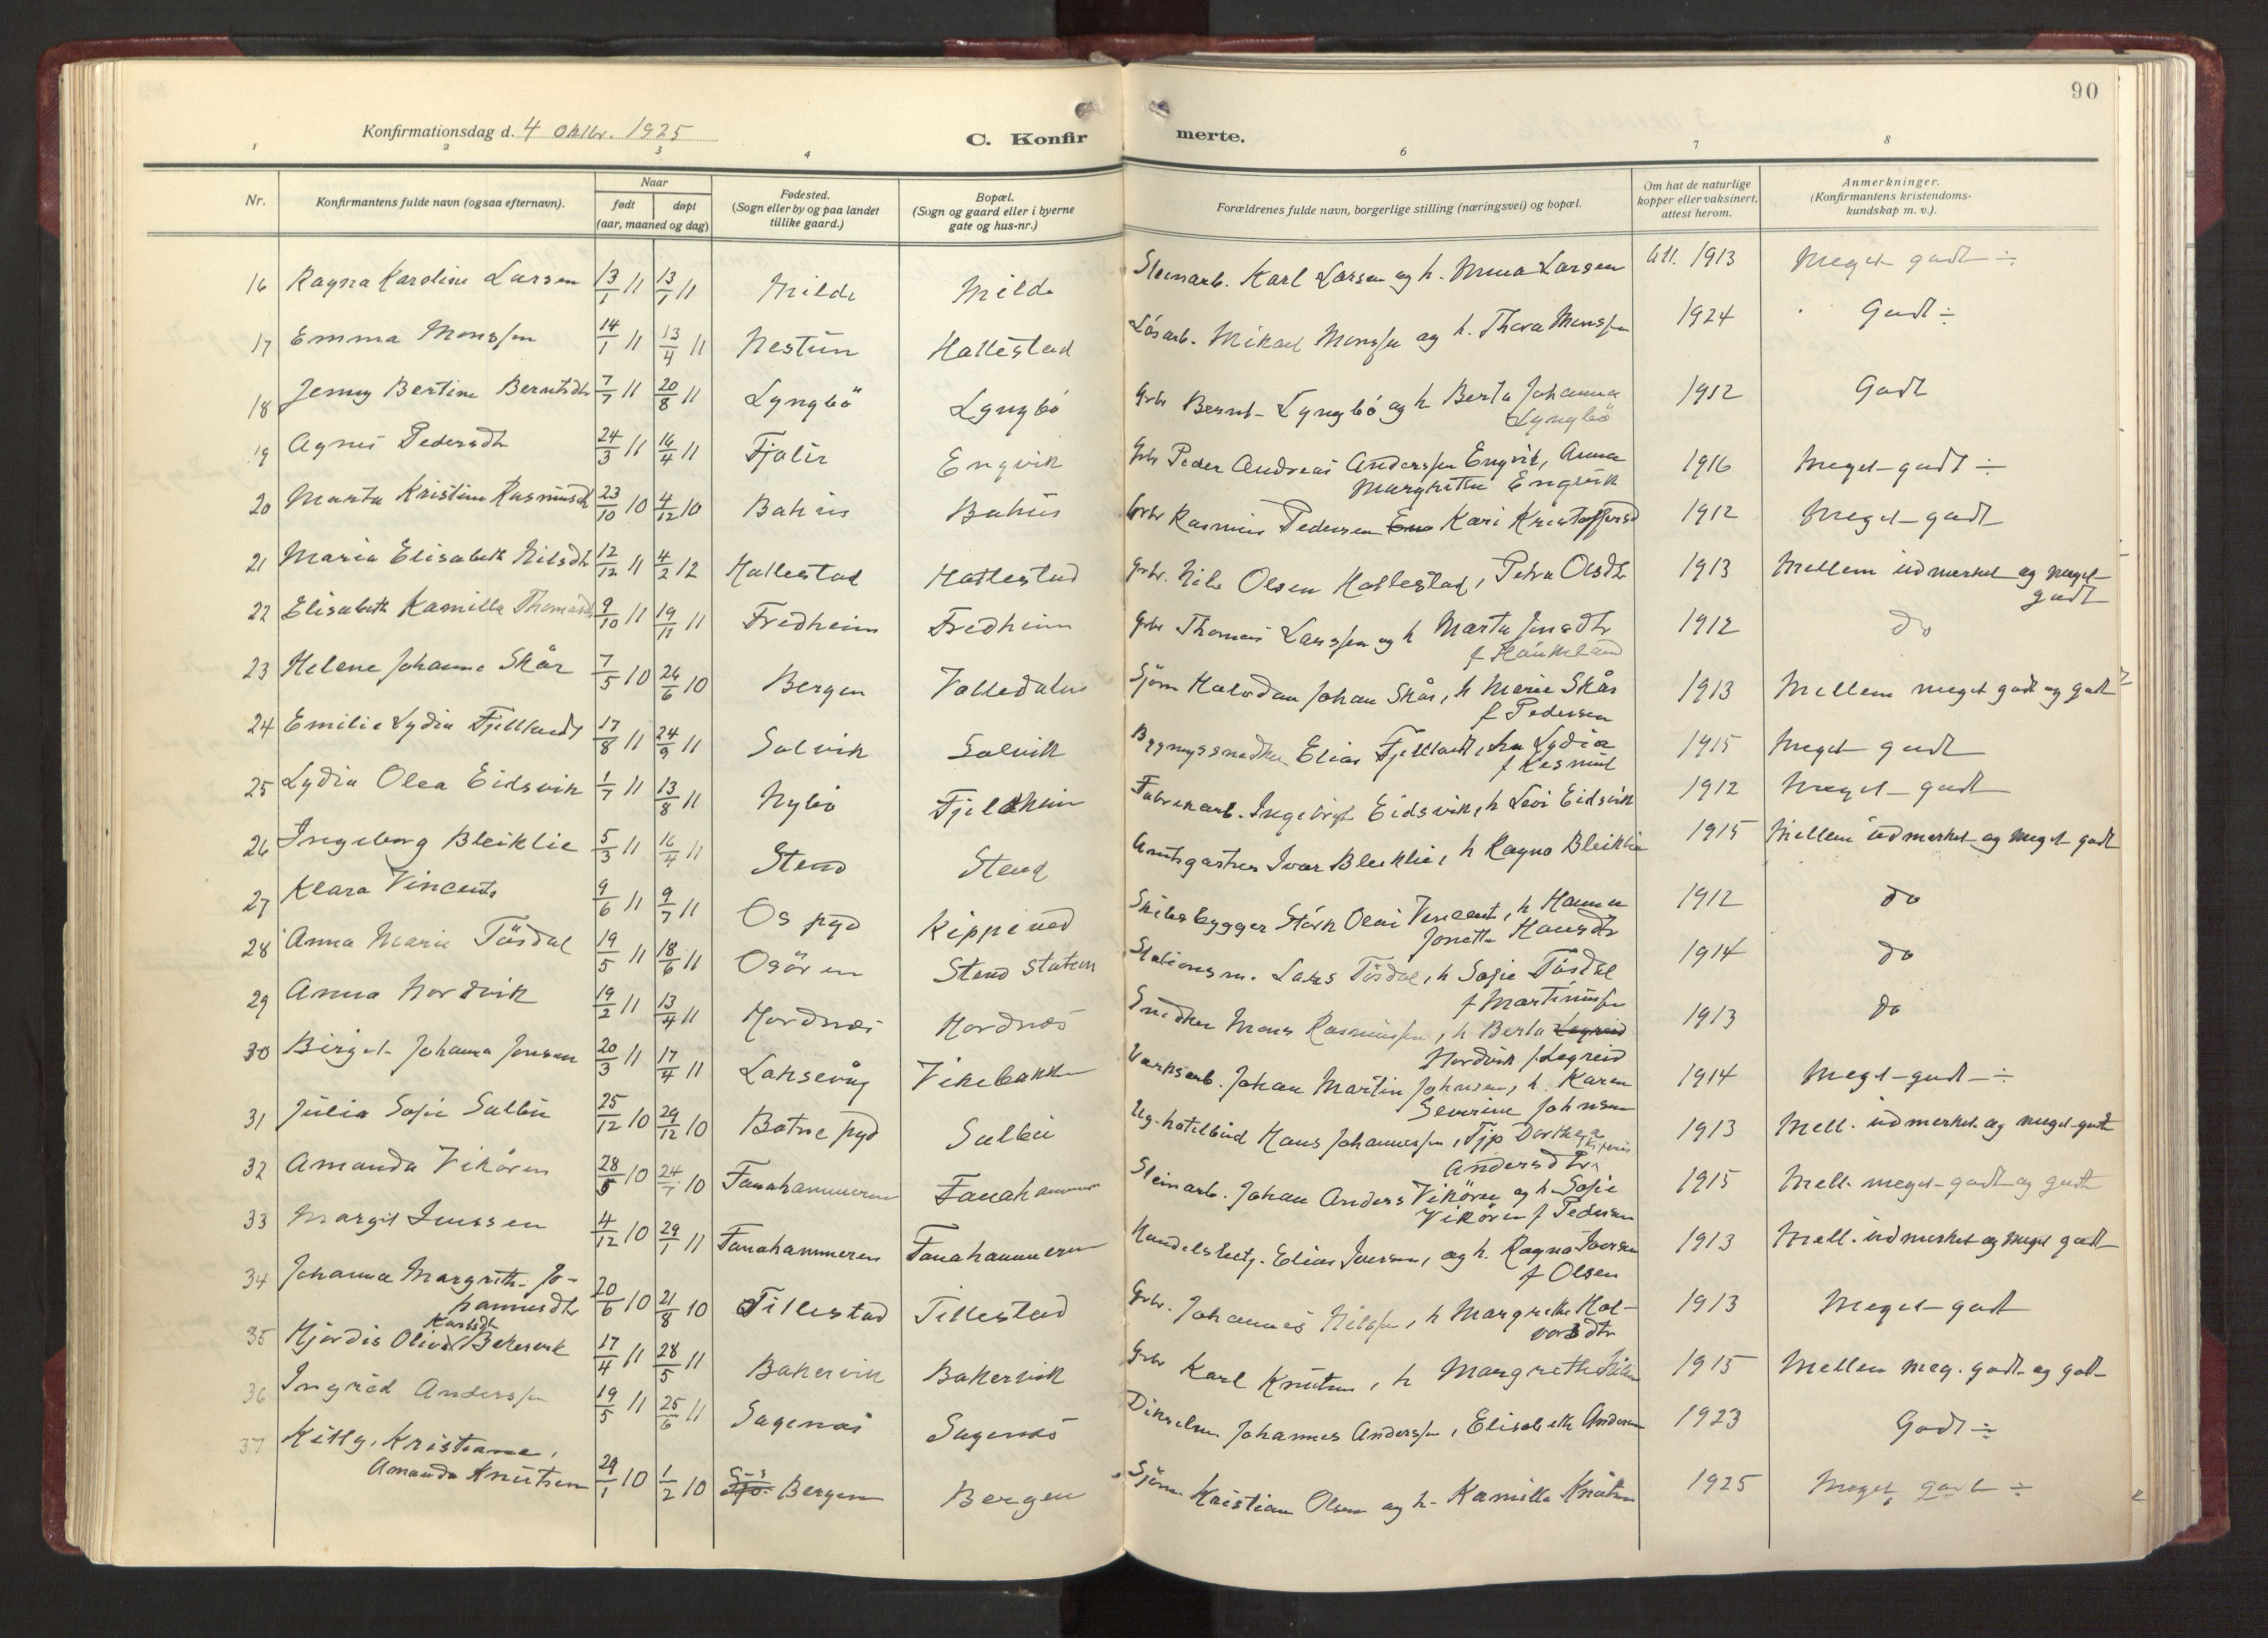 90
Konfirmationsdag d. 4 Oktbr. 1925
C. Konfir merte.
1 2 3 4 6 7 8
Nr. Konfirmantens fulde navn (ogsaa efternavn). Naar født døpt (aar, maaned og dag) Fødested. (Sogn eller by og paa landet tillike gaard.) Bopæl. (Sogn og gaard eller i byerne gate og hus-nr.) Forældrenes fulde navn, borgerlige stilling (næringsvei) og bopæl. Om hat de naturlige kopper eller vaksinert, attest herom. Anmerkninger. (Konfirmantens kristendoms-kundskap m. v.).
16 Ragna Karoline Larsen 13/1 11 13/1 11 Milde Milde Stenarb. Karl Larsen og h. Larsen Att. 1913 Meget godt ÷
17 Emma Monssen 14/1 11 13/4 11 Nestun Hattestad Løsarb. Mikael Monssen og h. Thora Monssen 1924 Godt ÷
18 Jenny Bertine Berntsdtr 7/7 11 20/8 11 Lyngbö Lyngbö Grbr Bernt Lyngbö og h Berta Johanna
Lyngbö 1912 Godt
19 Agnes Pedersdtr 24/3 11 16/4 11 Fjaler Engvik Grbr Peder Andreas Anderssen Engvik, Anna
Margretha Engvik 1916 Meget godt ÷
20 Marta Kristine Rasmusdtr 23/10 10 4/12 10 Bahus Bahus Grbr Rasmus Pedersen Kari Kristoffersd 1912 Meget godt
21 Maria Elisabeth Nilsdtr 12/12 11 4/2 12 Hattestad Hattestad Grbr. Nils Olsen Hattestad, Petra Olsdtr 1913 Mellem udmerket og meget
godt
22 Elisabeth Kamilla Thomasd 9/10 11 19/11 11 Fredheim Fredheim Grbr Thomas Larssen og h Marta Jonsdtr
f Haukeland 1912 do
23 Helene Johanne Skår 7/5 10 26/6 10 Bergen Valledalen Sjøm Halvdan Johan Skår, h Marie Skår
f Pedersen 1913 Mellem meget godt og godt
24 Emilie Lydia Fjelltandt 17/8 11 24/9 11 Solvik Solvik Bygningssnedker Elias Fjelltandt, Lydia
f 1915 Meget godt
25 Lydia Olea Eidsvik 1/7 11 13/8 11 Nybö Fjeldheim Fabrikarb. Ingebrigt Eidsvik, h Levi Eidsvik 1912 Meget godt
26 Ingeborg Bleiklie 5/3 11 16/4 11 Stend Stend Amtsgartner Ivar Bleiklie, h Ragna Bleiklie 1915 Mellem udmerket og meget godt
27 Klara Vincents 9/6 11 9/7 11 Os pgd Kippened Skibsbygger Olai Vincent, h Hanna
Jonette Hansdtr 1912 do
28 Anna Marie Tösdal 19/5 11 18/6 11 Osören Stend station Stationsm. Lars Tösdal, h Sofie Tösdal
f Martinussen 1914 do
29 Anna Nordvik 19/2 11 13/4 11 Hordnes Hordnes Snedker Mons Rasmussen, h Berta Legreid
Nordvik f Legreid 1913 do
30 Birgit Johanna Jonsen 20/3 11 17/4 11 Laksevåg Vikebakken Verksarb. Johan Martin Johnsen, h. Karen
Severine Johnsen 1914 Meget godt ÷
31 Julia Sofie Salbu 25/12 10 29/12 10 Botne pgd Salbu Hans Johannessen, Dorthea
Andersdtr 1913 Mell. udmerket og meget godt
32 Amanda Vikören 28/5 10 24/7 10 Fanahammeren Fanahammeren Steinarb. Johan Anders Vikören og h Sofie
Vikören f Pedersen 1915 Mell. meget godt og godt
33 Margit Iverssen 4/12 10 29/1 11 Fanahammeren Fanahammeren Handelsbetj. Elias Iversen, og h. Ragna Iversen
f Olsen 1913 Mell. udmerket og meget godt
34 Johanna Margreth Jo-
hannesdtr 20/6 10 21/8 10 Tillestad Tillestad Grbr. Johannes Nilssen, h Margrethe Hal-
vorsdtr 1913 Meget godt
35 Hjördis Olivia Karlsdtr Bakervik 17/4 11 28/5 11 Bakervik Bakervik Grbr Karl Knutsen, h Margrethe 1915 Mellem meg. godt og godt
36 Ingrid Anderssen 19/5 11 25/6 11 Sagenes Sagenes Johannes Anderssen, Elisabeth Andersen 1923 Godt ÷
37 Killy, Kristiane,
Amanda Knutsen 29/1 10 1/2 10 Bergen Bergen Sjöm Kristian Olsen og h. Kamilla Knutsen 1925 Meget godt ÷